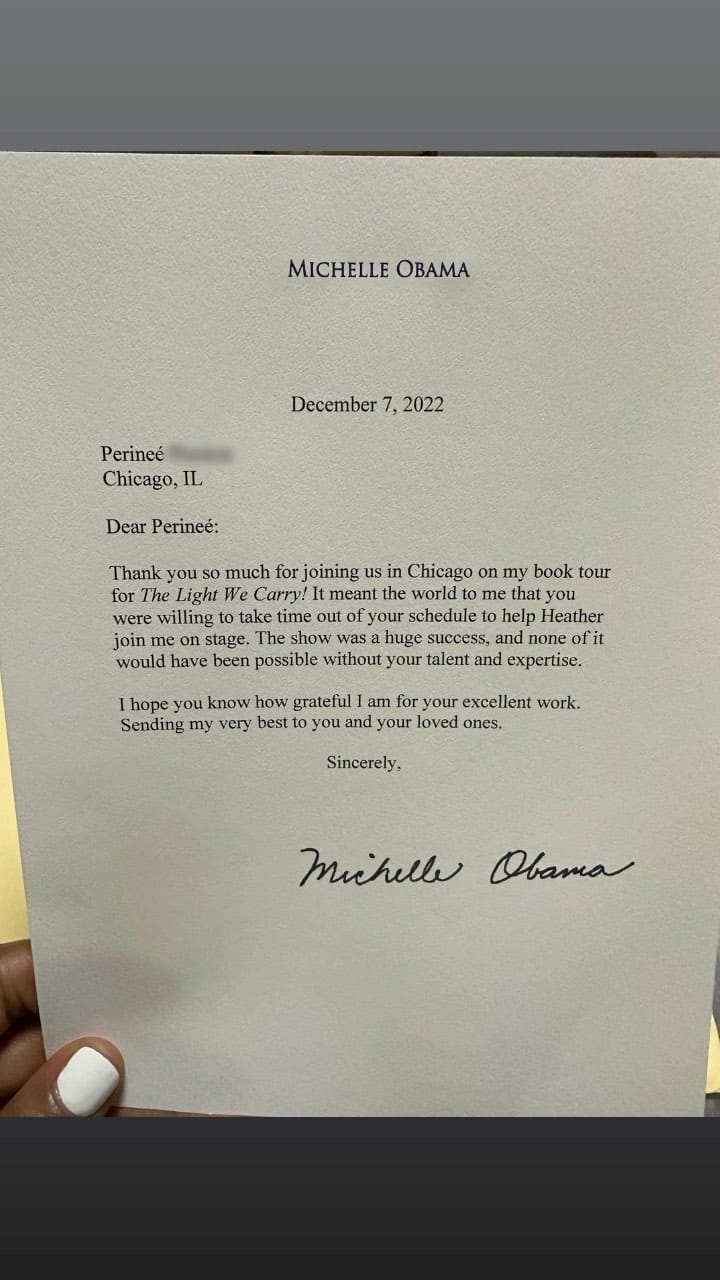 MICHELLE OBAMA
December 7, 2022
Perineé
Chicago, IL
Dear Perineé:
Thank you so much for joining us in Chicago on my book tour
for The Light We Carry! It meant the world to me that you
were willing to take time out of your schedule to help Heather
join me on stage. The show was a huge success, and none of it
would have been possible without your talent and expertise.
I hope you know how grateful I am for your excellent work.
Sending my very best to you and your loved ones.
Sincerely,
Michelle Obama